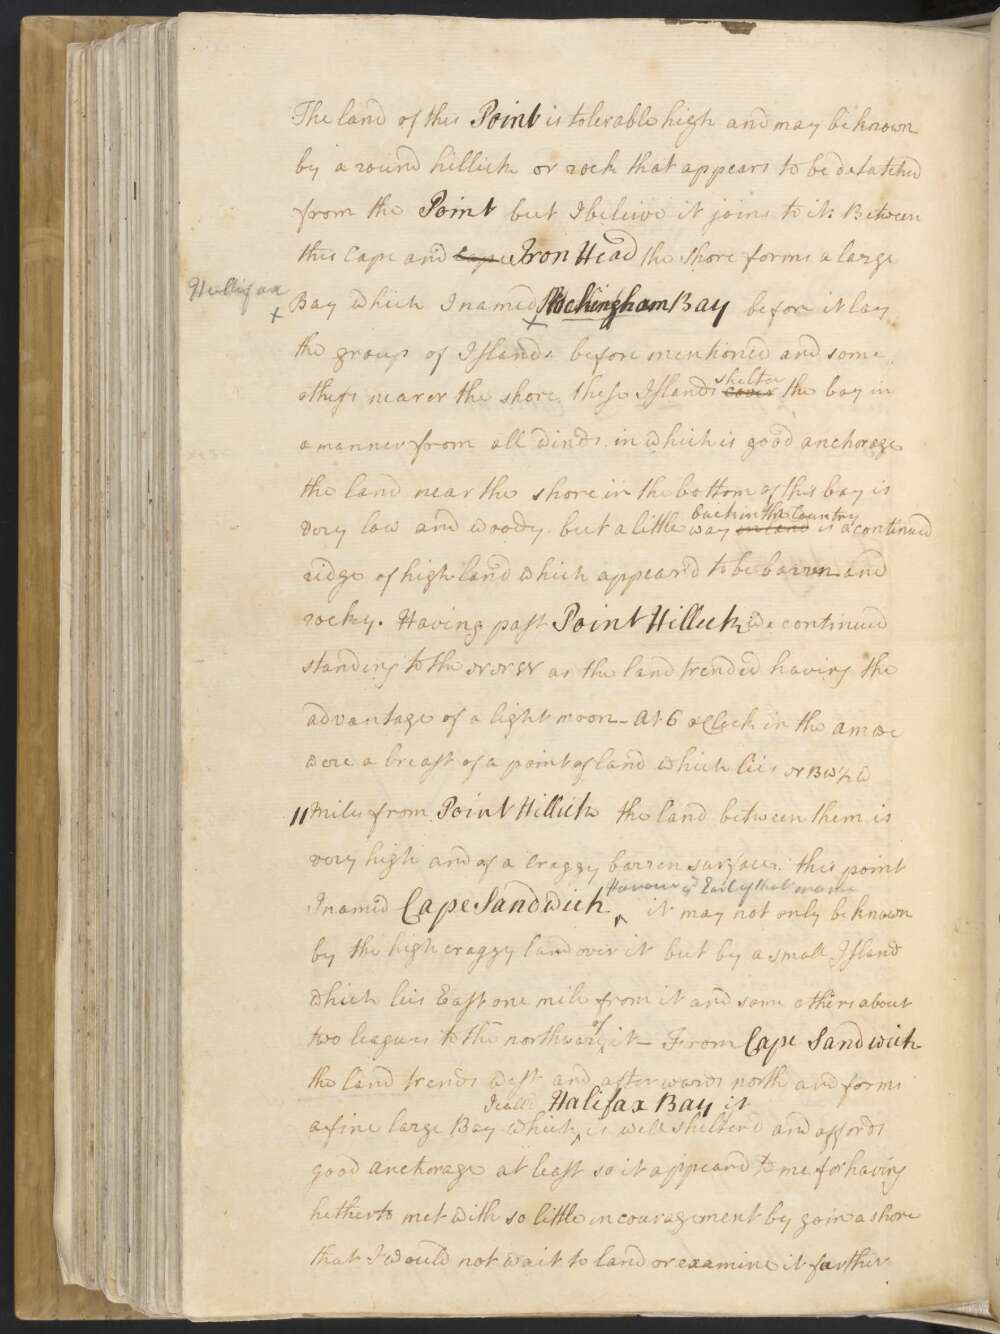 The land of this Point is tolerable high and may be known
by a round hillick or rock that appears to be detatched
from the Point but I beleive it joins to it: Between
this Cape and Cape Iron Head the shore forms a large
Hallifax
Bay which I named Rockingham Bay before it lay
the group of Islands before mentioned and some
others nearer the shore, these Islands cover shelter the bay in
a manner from all winds, in which is good anchorage
the land near the shore in the bottom of this bay is
very low and woody but a little way inland back in the Country is a continued
ridge of high land which appear'd to be barren and
rocky. Having past Point Hillick we continued
standing to the NNW as the land trended having the
advantage of a light moon - At 6 oClock in the am we
were a breast of a point of land which lies NBW½W
11 Miles from Point Hillick the land between them is
very high and of a craggy barren surface: this point
I named Cape Sandwich Honour of Earl of that name it may not only be known
by the high craggy land over it but by a small Island
which lies East one mile from it and some others about
two leagues to the northward of it - From Cape Sandwich
the land trends west and afterwards north and forms
I call'd Halifax Bay it
a fine large Bay which is well shelter'd and affords
good anchorage at least so it appear'd to me for having
hetherto met with so little incouragement by goin a shore
that I would not wait to land or examine it farther